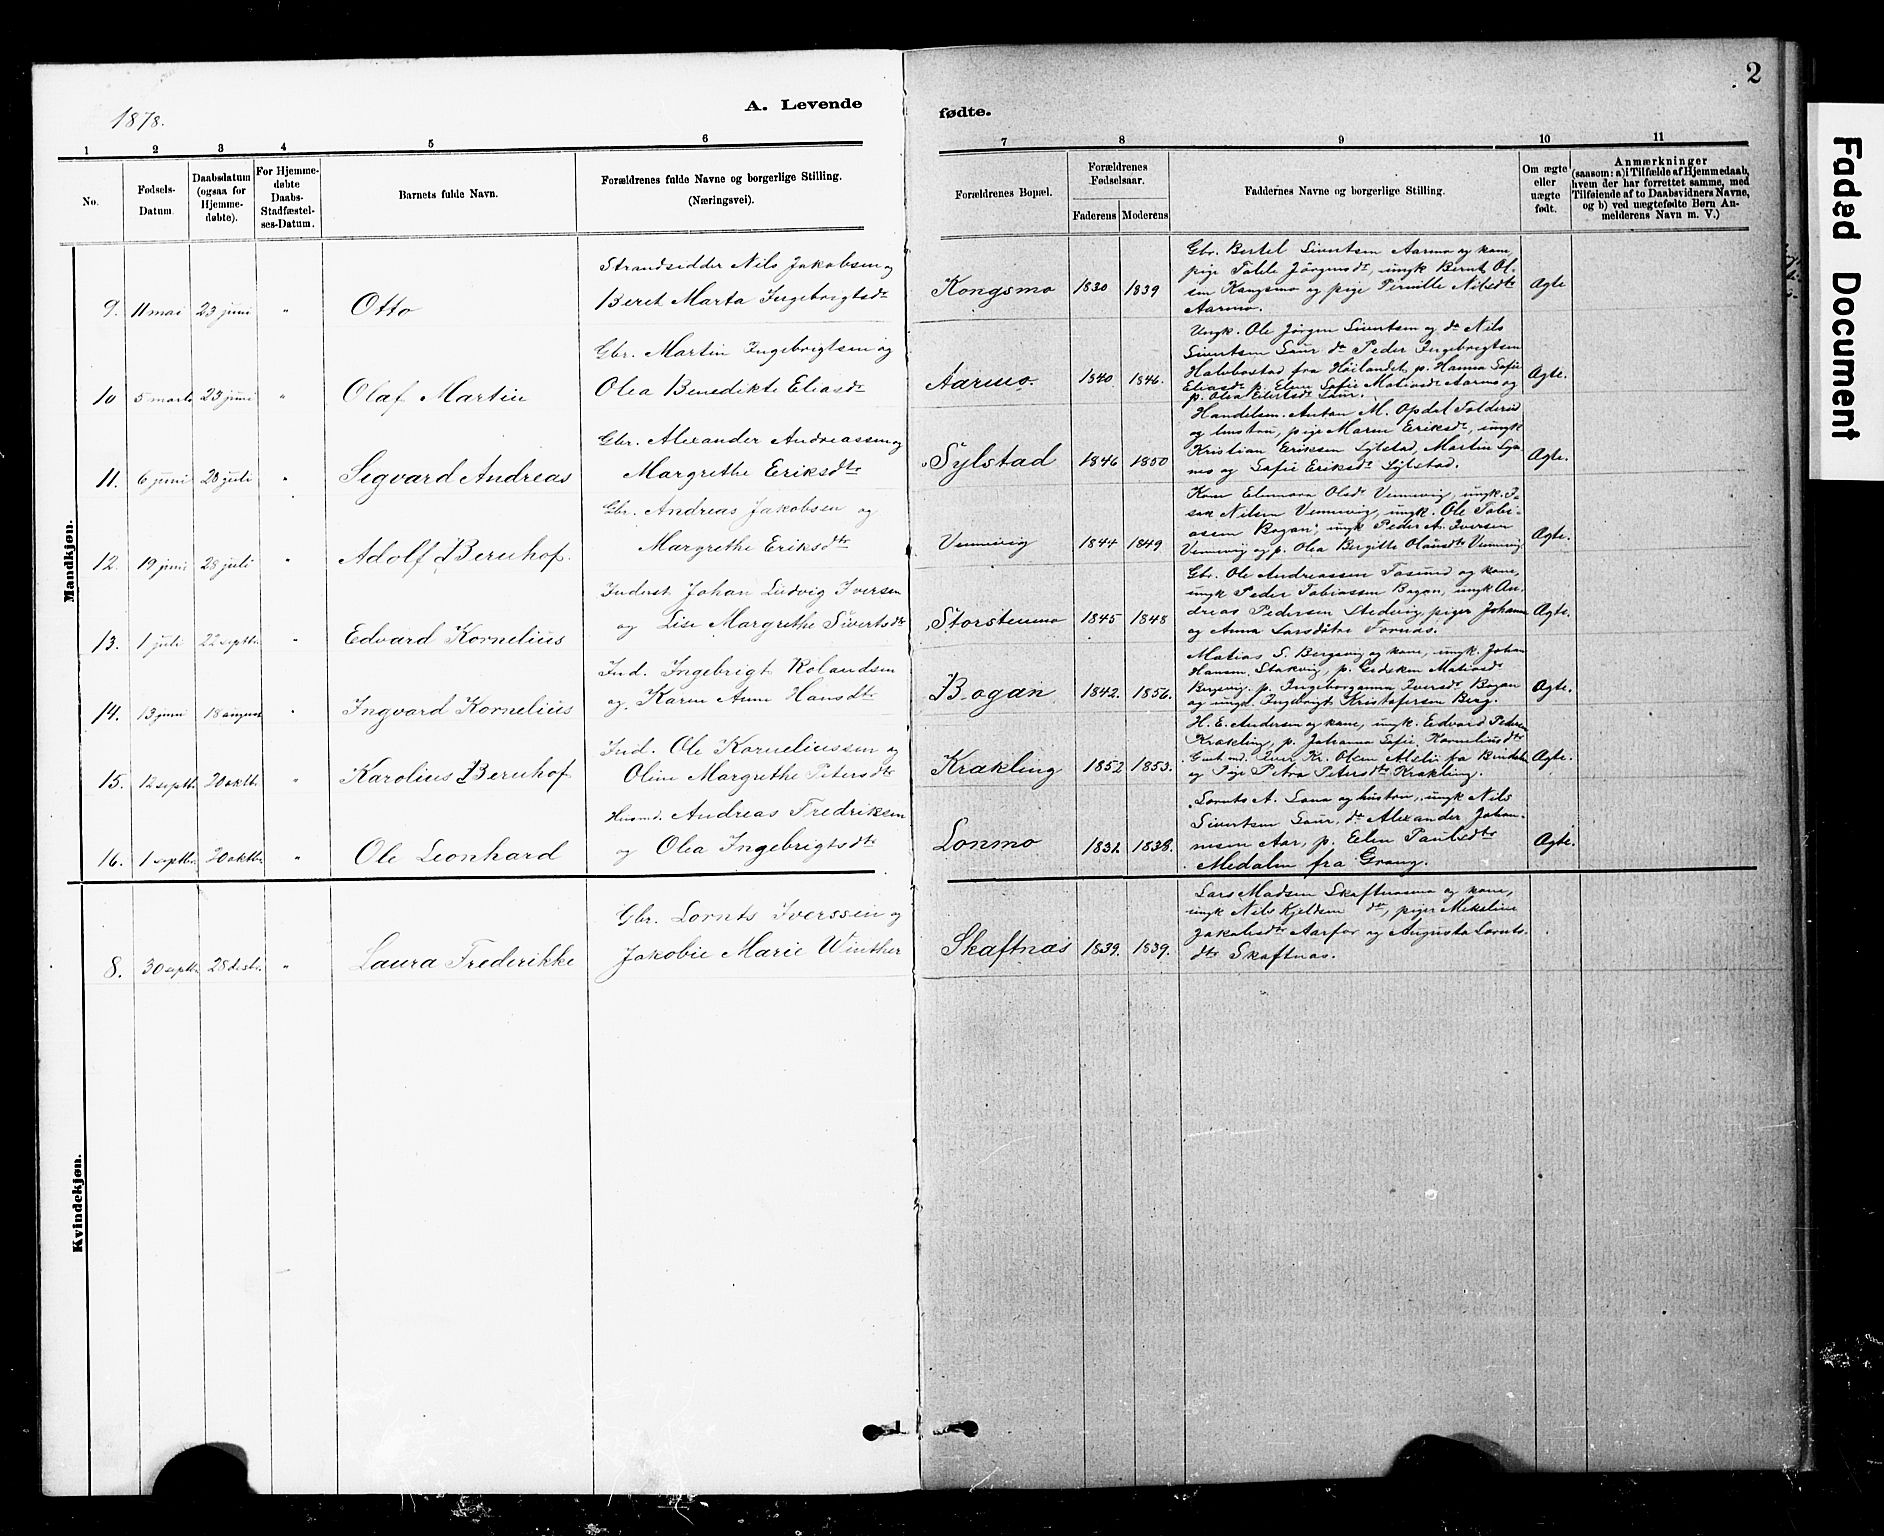 1878.
A. Levende
fødte.
2
Faded Document
1 2 3 4 5 6 7 8 9 10 11
No.
Fødsels-
Datum
Daabsdatum
(ogsaa for
Hjemme-
døbte).
For Hjemme-
døbte
Daabs-
Stadfæstel-
ses-Datum.
Barnets fulde Navn.
Forældrenes fulde Navne og borgerlige Stilling.
(Næringsvei).
Forældrenes Bopæl.
Forældrenes
Fødselsaar.
Faderens Moderens
Faddernes Navne og borgerlige Stilling.
Om ægte
eller
uægte
født.
Anmærkninger
(saasom: a) i Tilfælde af Hjemmedaab,
hvem der har forrettet samme, med
Tilføiende af to Daabsvidners Navne,
og b) ved uægtefødte Børn An-
melderens Navn m. V.)
Mandkjøn.
9. 11 mai 23 juni " Otto
Strandsidder Nils Jakobsen og
Beret Marta Ingebrigtsdr
Kongsmo 1830 1839
Gbr. Bertel Sivertsen Aarmo og kone,
pige Tolle Jørgensdr, ungk Bernt Ol-
sen Kongsmo og pige Pernille Nilsdtr
Aarmo.
Ægte
10 5 marts 23 juni " Olaf Martin
Gbr. Martin Ingebrigtsen og
Olea Benedikte Eliasdr
Aarmo. 1840 1846.
Ungk. Ole Jørgen Sivertsen og do Nils
Sivertsen Saur do Peder Ingebrigtsen
Halebostad fra Høilandet, p. Hanna Sofie
Eliasdr p. Elen Sofie Matiasdr Aarmo og
p. Olea Eliertsdr Saur.
Ægte.
11. 6 juni 28 juli " Sigvard Andreas
Gbr. Alexander Andreassen og
Margrethe Eriksdtr
Sylstad 1846 1850
Handelsm. Anton M. Opdal Foldereid
og hustru, pige Maren Eriksdr, ungk
Kristian Eriksen Sylstad, Martin
og Sofie Eriksdr Sylstad.
Ægte.
12. 19 juni 28 juli " Adolf Bernhof.
Gbr. Andreas Jakobsen og
Margrethe Eriksdtr
Vennevig 1844 1849
Kone Elenora Olsdr Vennevig, ungk. I-
sak Nilsen Vennevig, ungk. Ole Tobi-
assen Bogan, ungk Peder A. Iversen
Vennevig og p. Olea Bergitte Olausdtr Vennevig
Ægte.
13. 1 juli 22 septbr. " Edvard Kornelius
Inderst Johan Ludvig Iversen
og Lise Margrethe Sivertsdtr
Storstenmo 1845 1848
Gbr. Ole Andreassen Fosund og kone,
ungk Peder Tobiassen Bogan, ungk An-
dreas Pedersen Stedvig, piger Johanna
og Anna Larsdøtre Tornas.
Ægte.
14. 13 juni 18 august " Ingvard Kornelius
Ind. Ingebrigt Rolandsen
og Karen Anne Hansdtr
Bogan 1842. 1856.
Matias S. Bergsvig og kone, ungk. Johan
Hansen Stokvig, p. Gjedsken Matiasdr
Bergsvig. p. Ingeborganna Iversdtr Bogan
og ungd. Ingebrigt Kristofersen Berg.
Ægte.
15. 12 septbr. 20 oktbr. " Karolius Bernhof
Ind. Ole Korneliussen og
Oline Margrethe Petersdtr
Krakling 1852 1853.
H. E. Andersen og kone, ungk. Edvard Peders.
Krakling, p. Johanna Sofie Korneliusdtr
Gaardmd. Iver Kr. Olsen Melie fra Bindalen
og Pige Petra Petersdtr Krakling.
Ægte.
16. 1 septbr. 20 oktbr. " Ole Leonhard
Husmd. Andreas Fredriksen
og Olea Ingebrigtsdtr
Lonmo 1831. 1838.
Lornts A. Lona og hustru, ungk Nils
Sivertsen Saur, do Alexander Johan-
nesen Aar, p. Elen Paulsdtr
Medalen fra Grong.
Ægte.
Kvindekjøn.
8. 30 septbr. 28 desbr. " Laura Frederikke
Gbr. Lornts Iverssen og
Jakobie Marie Winther
Skaftnas 1839. 1839.
Lars Madsen Skaftnasmo og kone,
ungk Nils Kjeldsen do, piger Mekeline
Jakobsdr Aarfor og Augusta Lornts-
dtr Skaftnas.